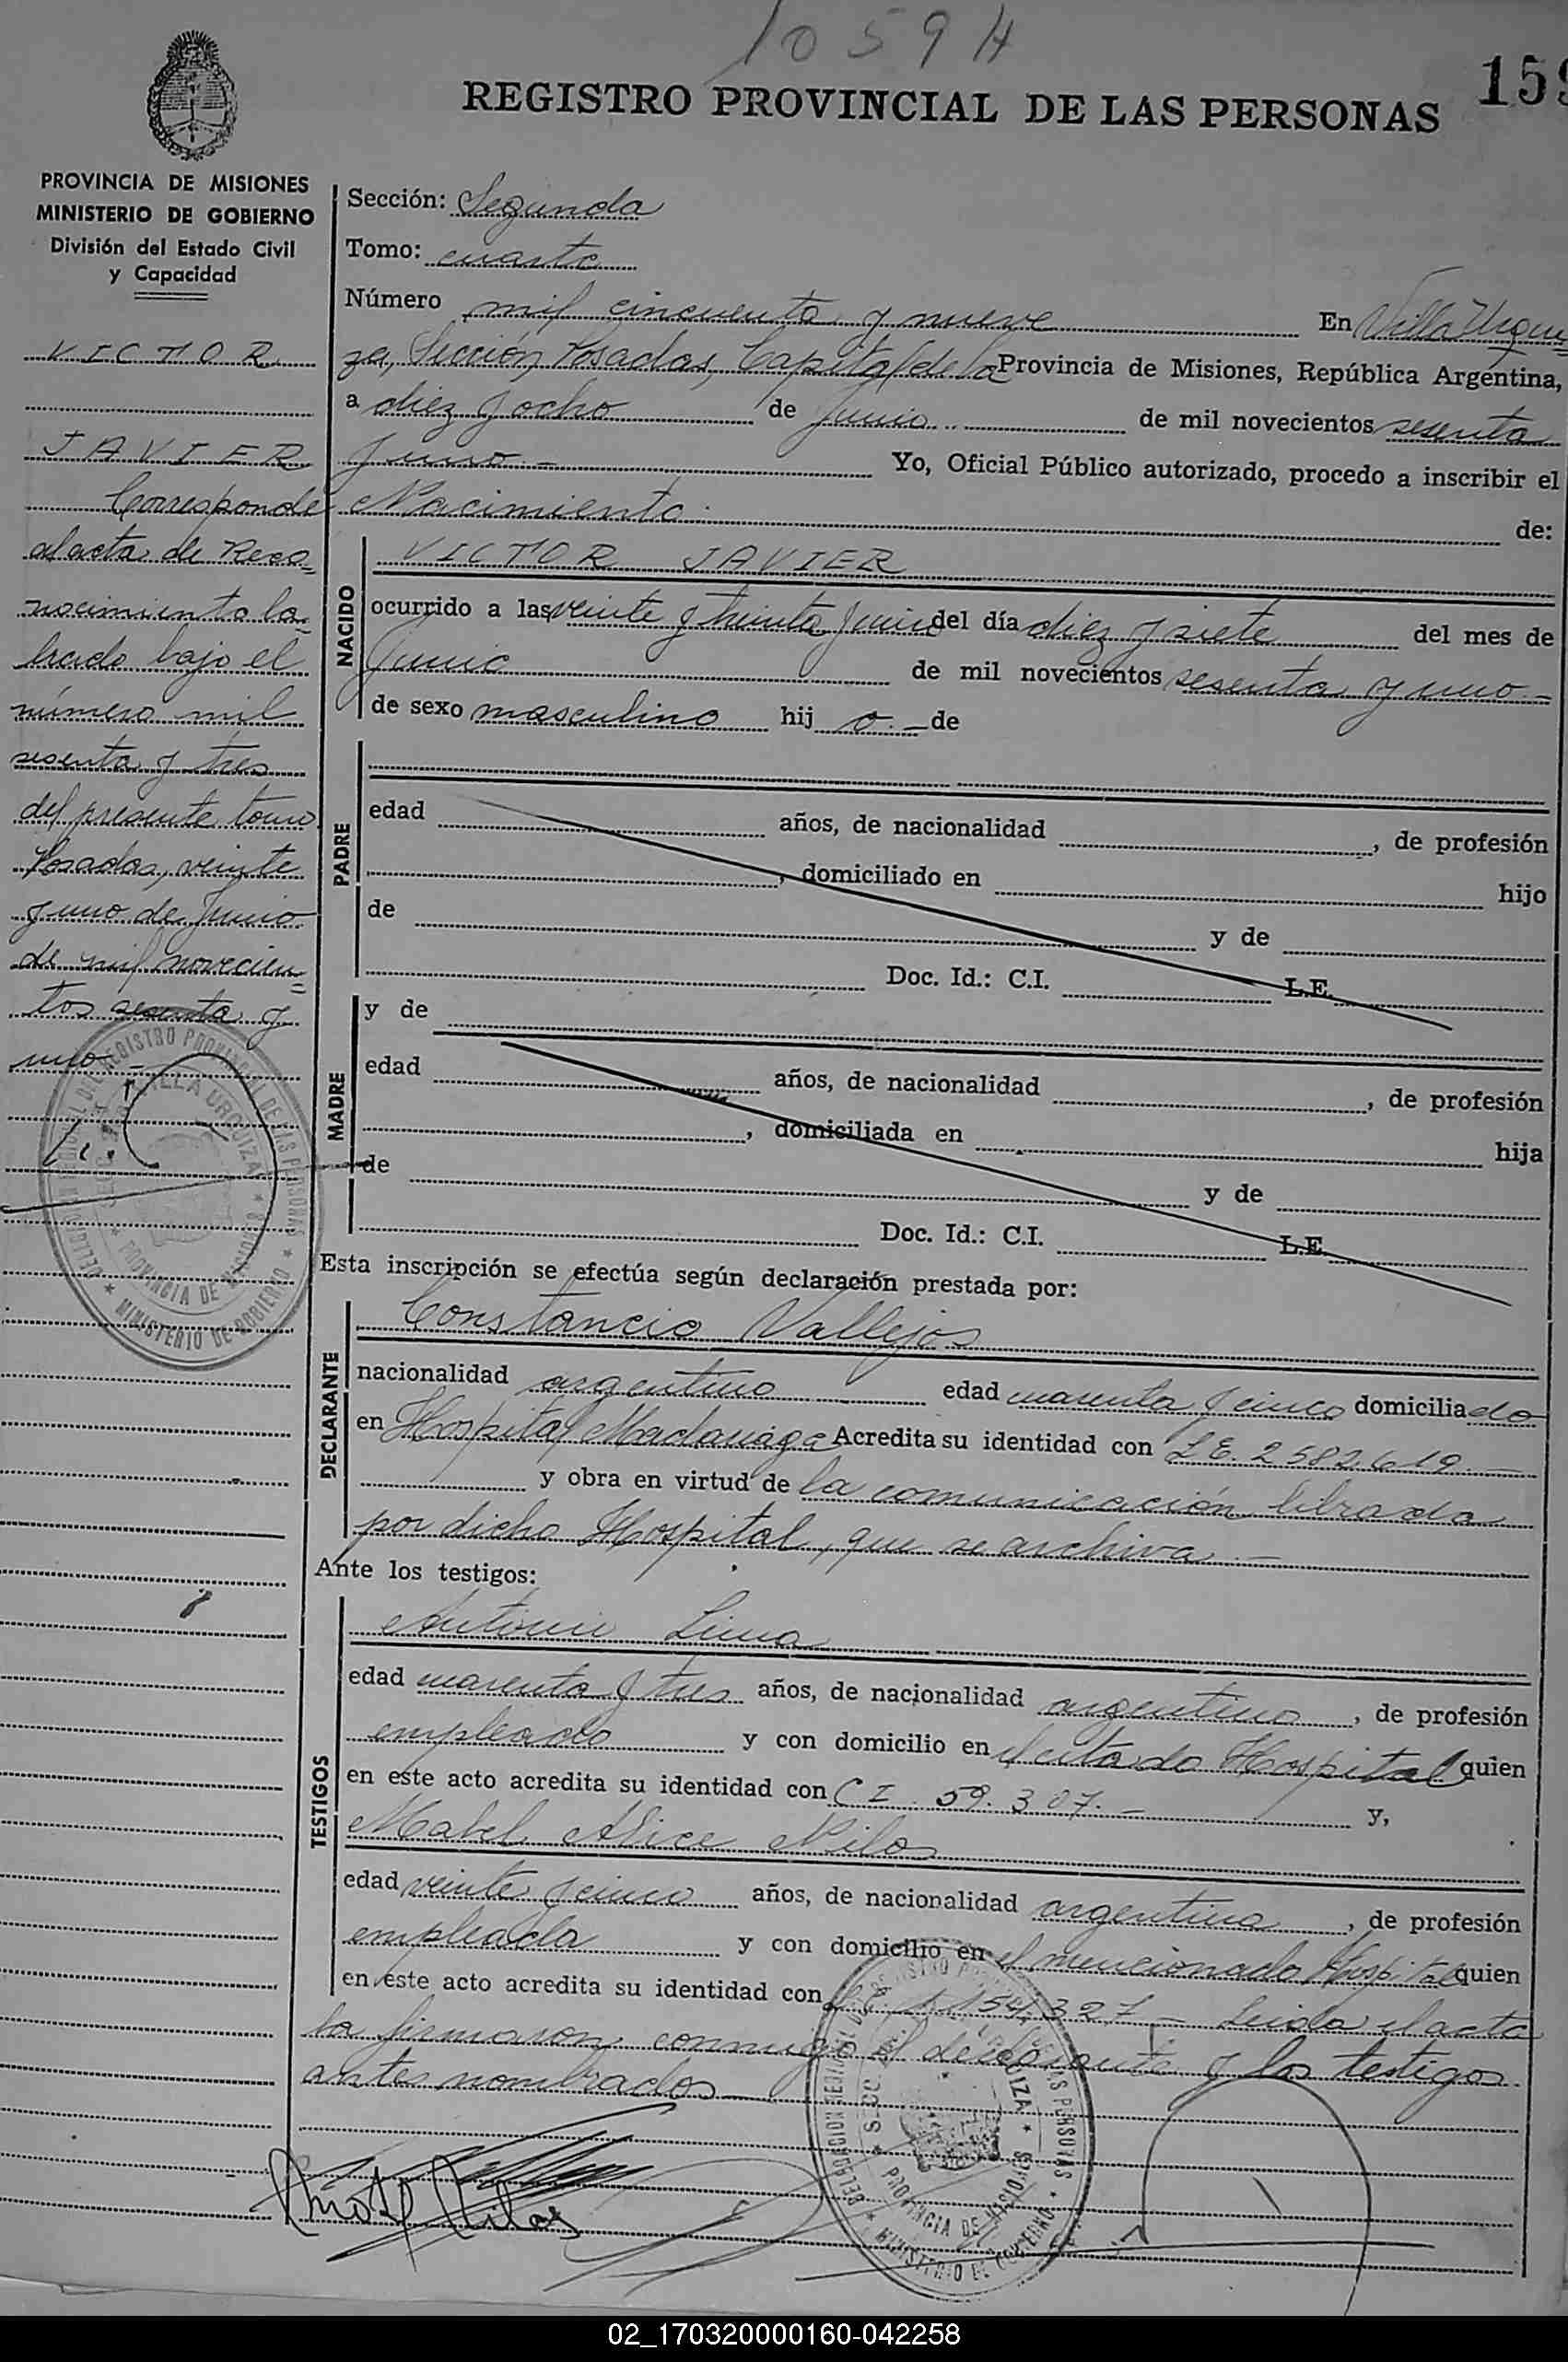 1059H
REGISTRO PROVINCIAL DE LAS PERSONAS
159
PROVINCIA DE MISIONES
MINISTERIO DE GOBIERNO
División del Estado Civil
y Capacidad
VICTOR
JAVIER
Corresponde
al acta de Reco=
nocimiento la=
brado bajo el
número mil
sesenta y tres
del presente tomo
Posadas, veinte
y uno de Junio
de mil novecien=
tos sesenta y
uno -
Sección: Segunda
Tomo: cuarto
Número mil cincuenta y nueve En Villa Urqui=
za, Sección Posadas, Capital de la Provincia de Misiones, República Argentina,
a diez y ocho de Junio de mil novecientos sesenta
y uno - Yo, Oficial Público autorizado, procedo a inscribir el
Nacimiento de:
NACIDO
VICTOR JAVIER
ocurrido a las veinte y treinta del día diez y siete del mes de
Junio de mil novecientos sesenta y uno -
de sexo masculino hij o - de
PADRE
edad años, de nacionalidad , de profesión
, domiciliado en hijo
de y de
Doc. Id.: C.I. L.E.
MADRE
y de
edad años, de nacionalidad , de profesión
, domiciliada en hija
de y de
Doc. Id.: C.I. L.E.
Esta inscripción se efectúa según declaración prestada por:
DECLARANTE
Constancio Vallejos
nacionalidad argentino edad cuarenta y cinco domiciliado
en Hospital Madariaga Acredita su identidad con L.E. 2582.619. -
y obra en virtud de la comunicación librada
por dicho Hospital, que se archiva. -
Ante los testigos:
TESTIGOS
Antonio Lima
edad cuarenta y tres años, de nacionalidad argentino, de profesión
empleado y con domicilio en el citado Hospital quien
en este acto acredita su identidad con C I. 59.307. - y,
Mabel Alice Nilos
edad veinte y cinco años, de nacionalidad argentina, de profesión
empleada y con domicilio en el mencionado Hospital quien
en este acto acredita su identidad con 1.154.327 - Leída el acta
la firmaron conmigo el declarante y los testigos
antes nombrados
DELEGACION REGIONAL DEL REGISTRO PROVINCIAL DE LAS PERSONAS
VILLA URQUIZA
PROVINCIA DE MISIONES
MINISTERIO DE GOBIERNO
02_170320000160-042258